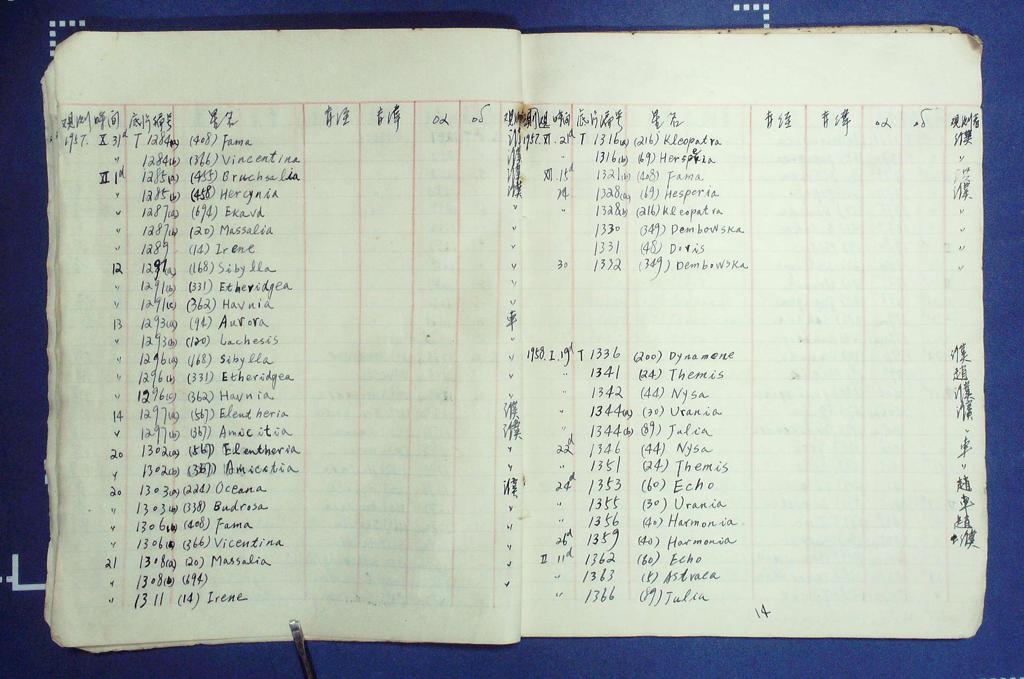 观测时间 底片编号 星名 赤经 赤纬 α2 α5
1957. X 31d T 1284(a) (408) Fama 濮
" 1284(b) (366) Vincentina 濮
XI 1d 1285(a) (455) Bruchsalia 濮
" 1285(b) (458) Hercynia 濮
" 1287(a) (694) Ekard "
" 1287(b) (20) Massalia "
" 1289 (14) Irene "
12 1291(a) (168) Sibylla "
" 1291(b) (331) Etheridgea "
" 1291(c) (362) Havnia "
13 1293(a) (94) Aurora 车
" 1293(b) (120) Lachesis "
" 1296(a) (168) Sibylla "
" 1296(b) (331) Etheridgea "
" 1296(c) (362) Havnia "
14 1297(a) (567) Eleutheria 濮
" 1297(b) (367) Amicitia 濮
20 1302(a) (567) Eleutheria "
" 1302(b) (367) Amicitia "
20 1303(a) (224) Oceana 濮
" 1303(b) (338) Budrosa "
" 1306(a) (408) Fama "
" 1306(b) (366) Vicentina "
21 1308(a) (20) Massalia "
" 1308(b) (694) "
" 1311 (14) Irene
观测时间 底片编号 星名 赤经 赤纬 α2 α5 观测者
1957. XI. 21d T 1316(a) (216) Kleopatra 濮
" 1316(b) (69) Hesperia "
XII. 15d 1321(b) (408) Fama
24 1328(a) (69) Hesperia 濮
" 1328(b) (216) Kleopatra "
" 1330 (349) Dembowska "
" 1331 (48) Doris "
30 1332 (349) Dembowska "
1958. I. 19d T 1336 (200) Dynamene 濮
" 1341 (24) Themis 赵
" 1342 (44) Nysa 濮
" 1344(a) (30) Urania 濮
" 1344(b) (89) Julia "
22d 1346 (44) Nysa 车
" 1351 (24) Themis "
24d 1353 (60) Echo 赵
" 1355 (30) Urania 车
" 1356 (40) Harmonia 赵
26d 1359 (40) Harmonia 濮
II 11d 1362 (60) Echo
" 1363 (5) Astraea
" 1366 (89) Julia
14